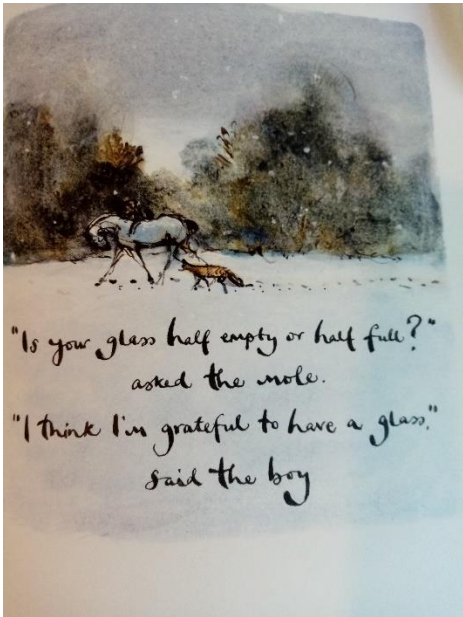 "Is your glass half empty or half full?"
asked the mole.
"I think I'm grateful to have a glass."
said the boy